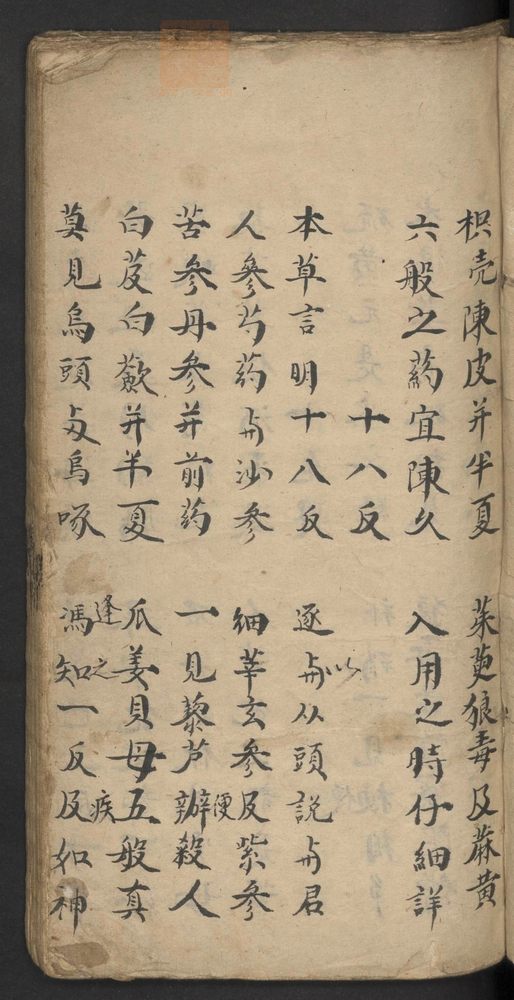 枳壳陳皮并半夏 茱萸狼毒及蔴黄
六般之药宜陳久 入用之時仔細詳
十八反
本草言明十八反 逐与从頭説与君
人參芍药与沙參 細辛玄參及紫參
苦參丹參并前药 一見藜芦辦殺人
便
白芨白蘞并半夏 瓜姜貝母五般真
莫見烏頭与烏啄 馮知一反及如神
逢之
疾